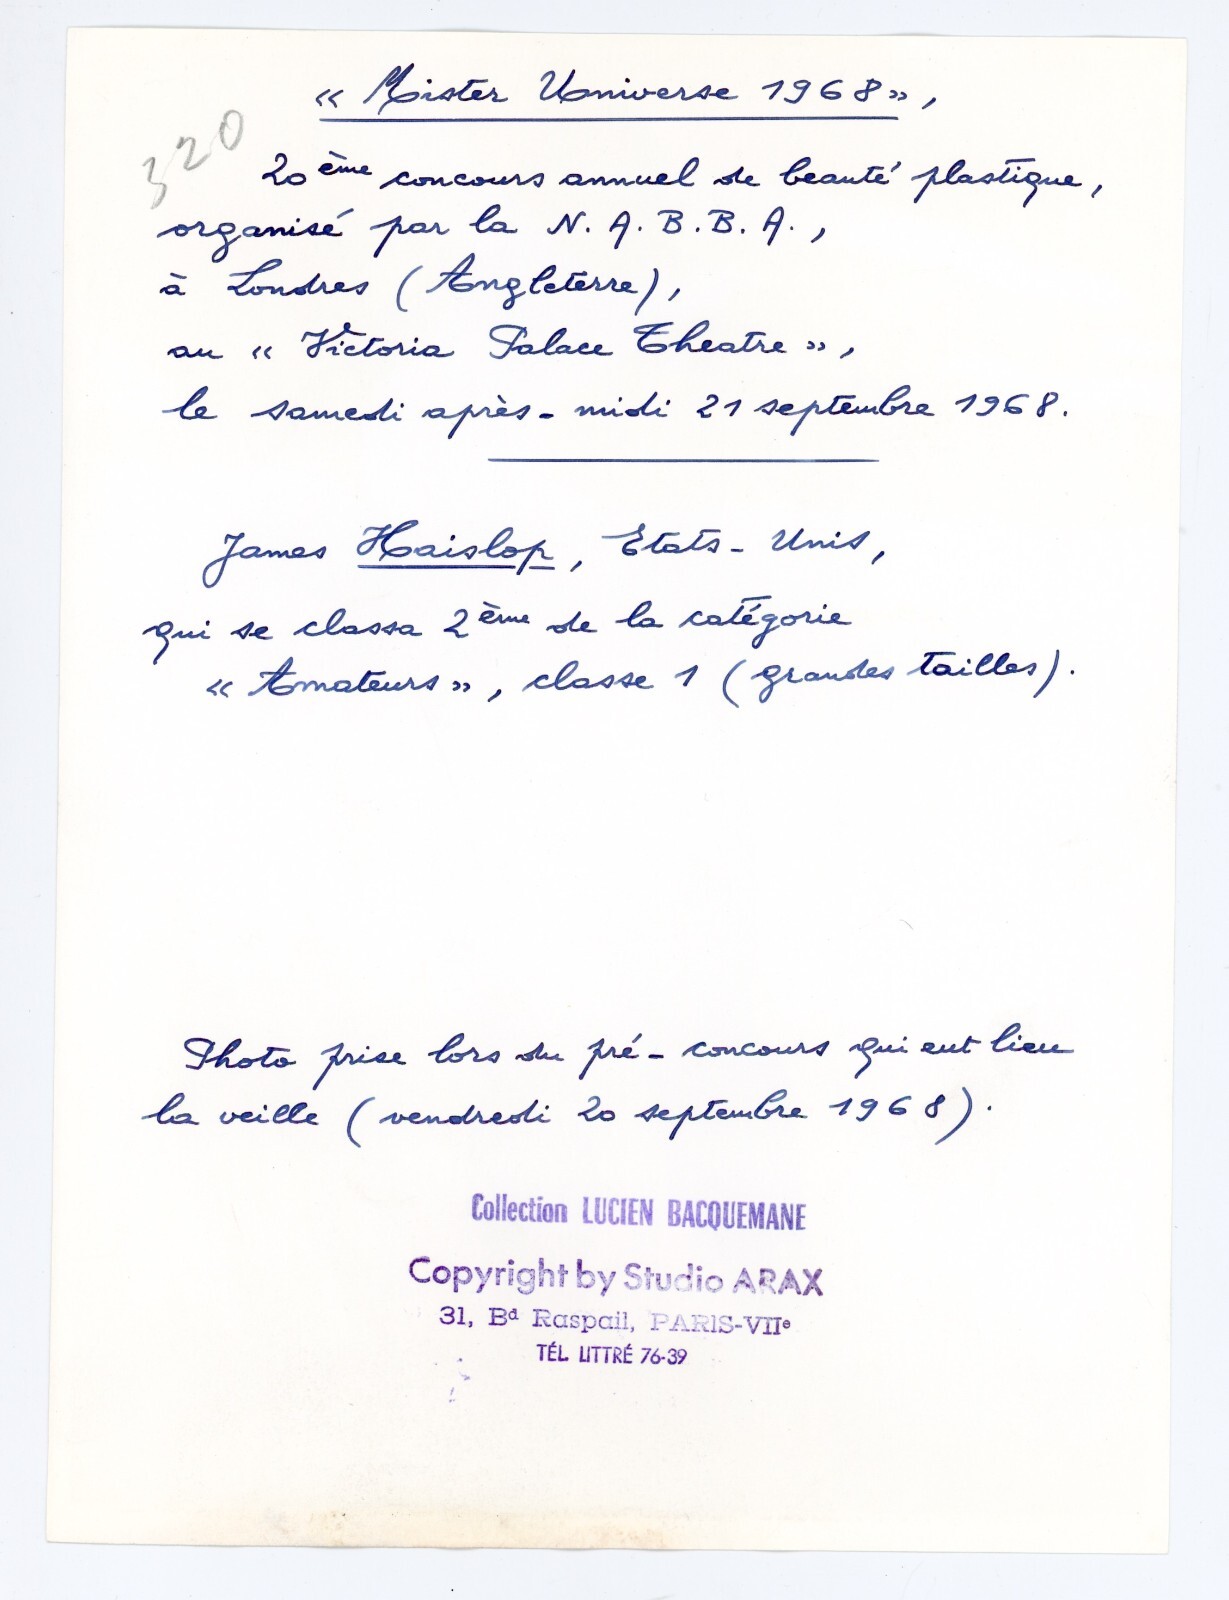 « Mister Universe 1968 »,
320
20ème concours annuel de beauté plastique,
organisé par la N. A. B. B. A.,
à Londres (Angleterre),
au « Victoria Palace Theatre »,
le samedi après-midi 21 septembre 1968.
James Haislop, Etats-Unis,
qui se classa 2ème de la catégorie
« Amateurs », classe 1 (grandes tailles).
Photo prise lors du pré-concours qui eut lieu
la veille (vendredi 20 septembre 1968).
Collection LUCIEN BACQUEMANE
Copyright by Studio ARAX
31, Bd Raspail, PARIS-VIIe
TÉL. LITTRÉ 76-39